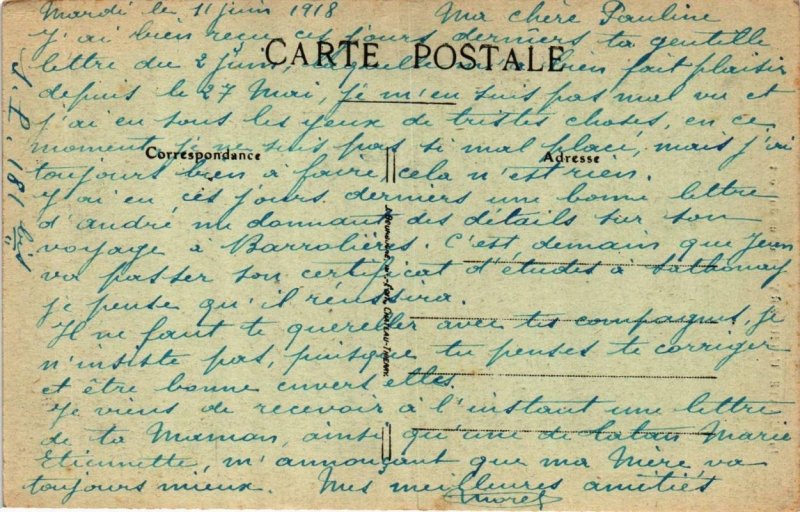 Mardi le 11 juin 1918 Ma chère Pauline
J'ai bien reçu ces jours derniers ta gentille
CARTE POSTALE
lettre du 2 Juin, laquelle m'a bien fait plaisir
depuis le 27 Mai, je m'en suis pas mal vu et
j'ai eu sous les yeux de tristes choses, en ce
moment je ne suis pas si mal placé, mais j'ai
Correspondance
Adresse
toujours bien à faire, cela n'est rien.
J'ai eu ces jours derniers une bonne lettre
d'andré me donnant des détails sur son
voyage à Barrolières. C'est demain que Jean
va passer son certificat d'études à Sathonay
je pense qu'il réussira.
Il ne faut te quereller avec tes compagnes, je
n'insiste pas, puisque tu penses te corriger
et être bonne envers elles.
Je viens de recevoir à l'instant une lettre
de ta Maman, ainsi qu'une de Marie
Etiennette, m'annonçant que ma Mère va
toujours mieux. Mes meilleures amitiés
Morel
CHATEAU-THIERRY
181